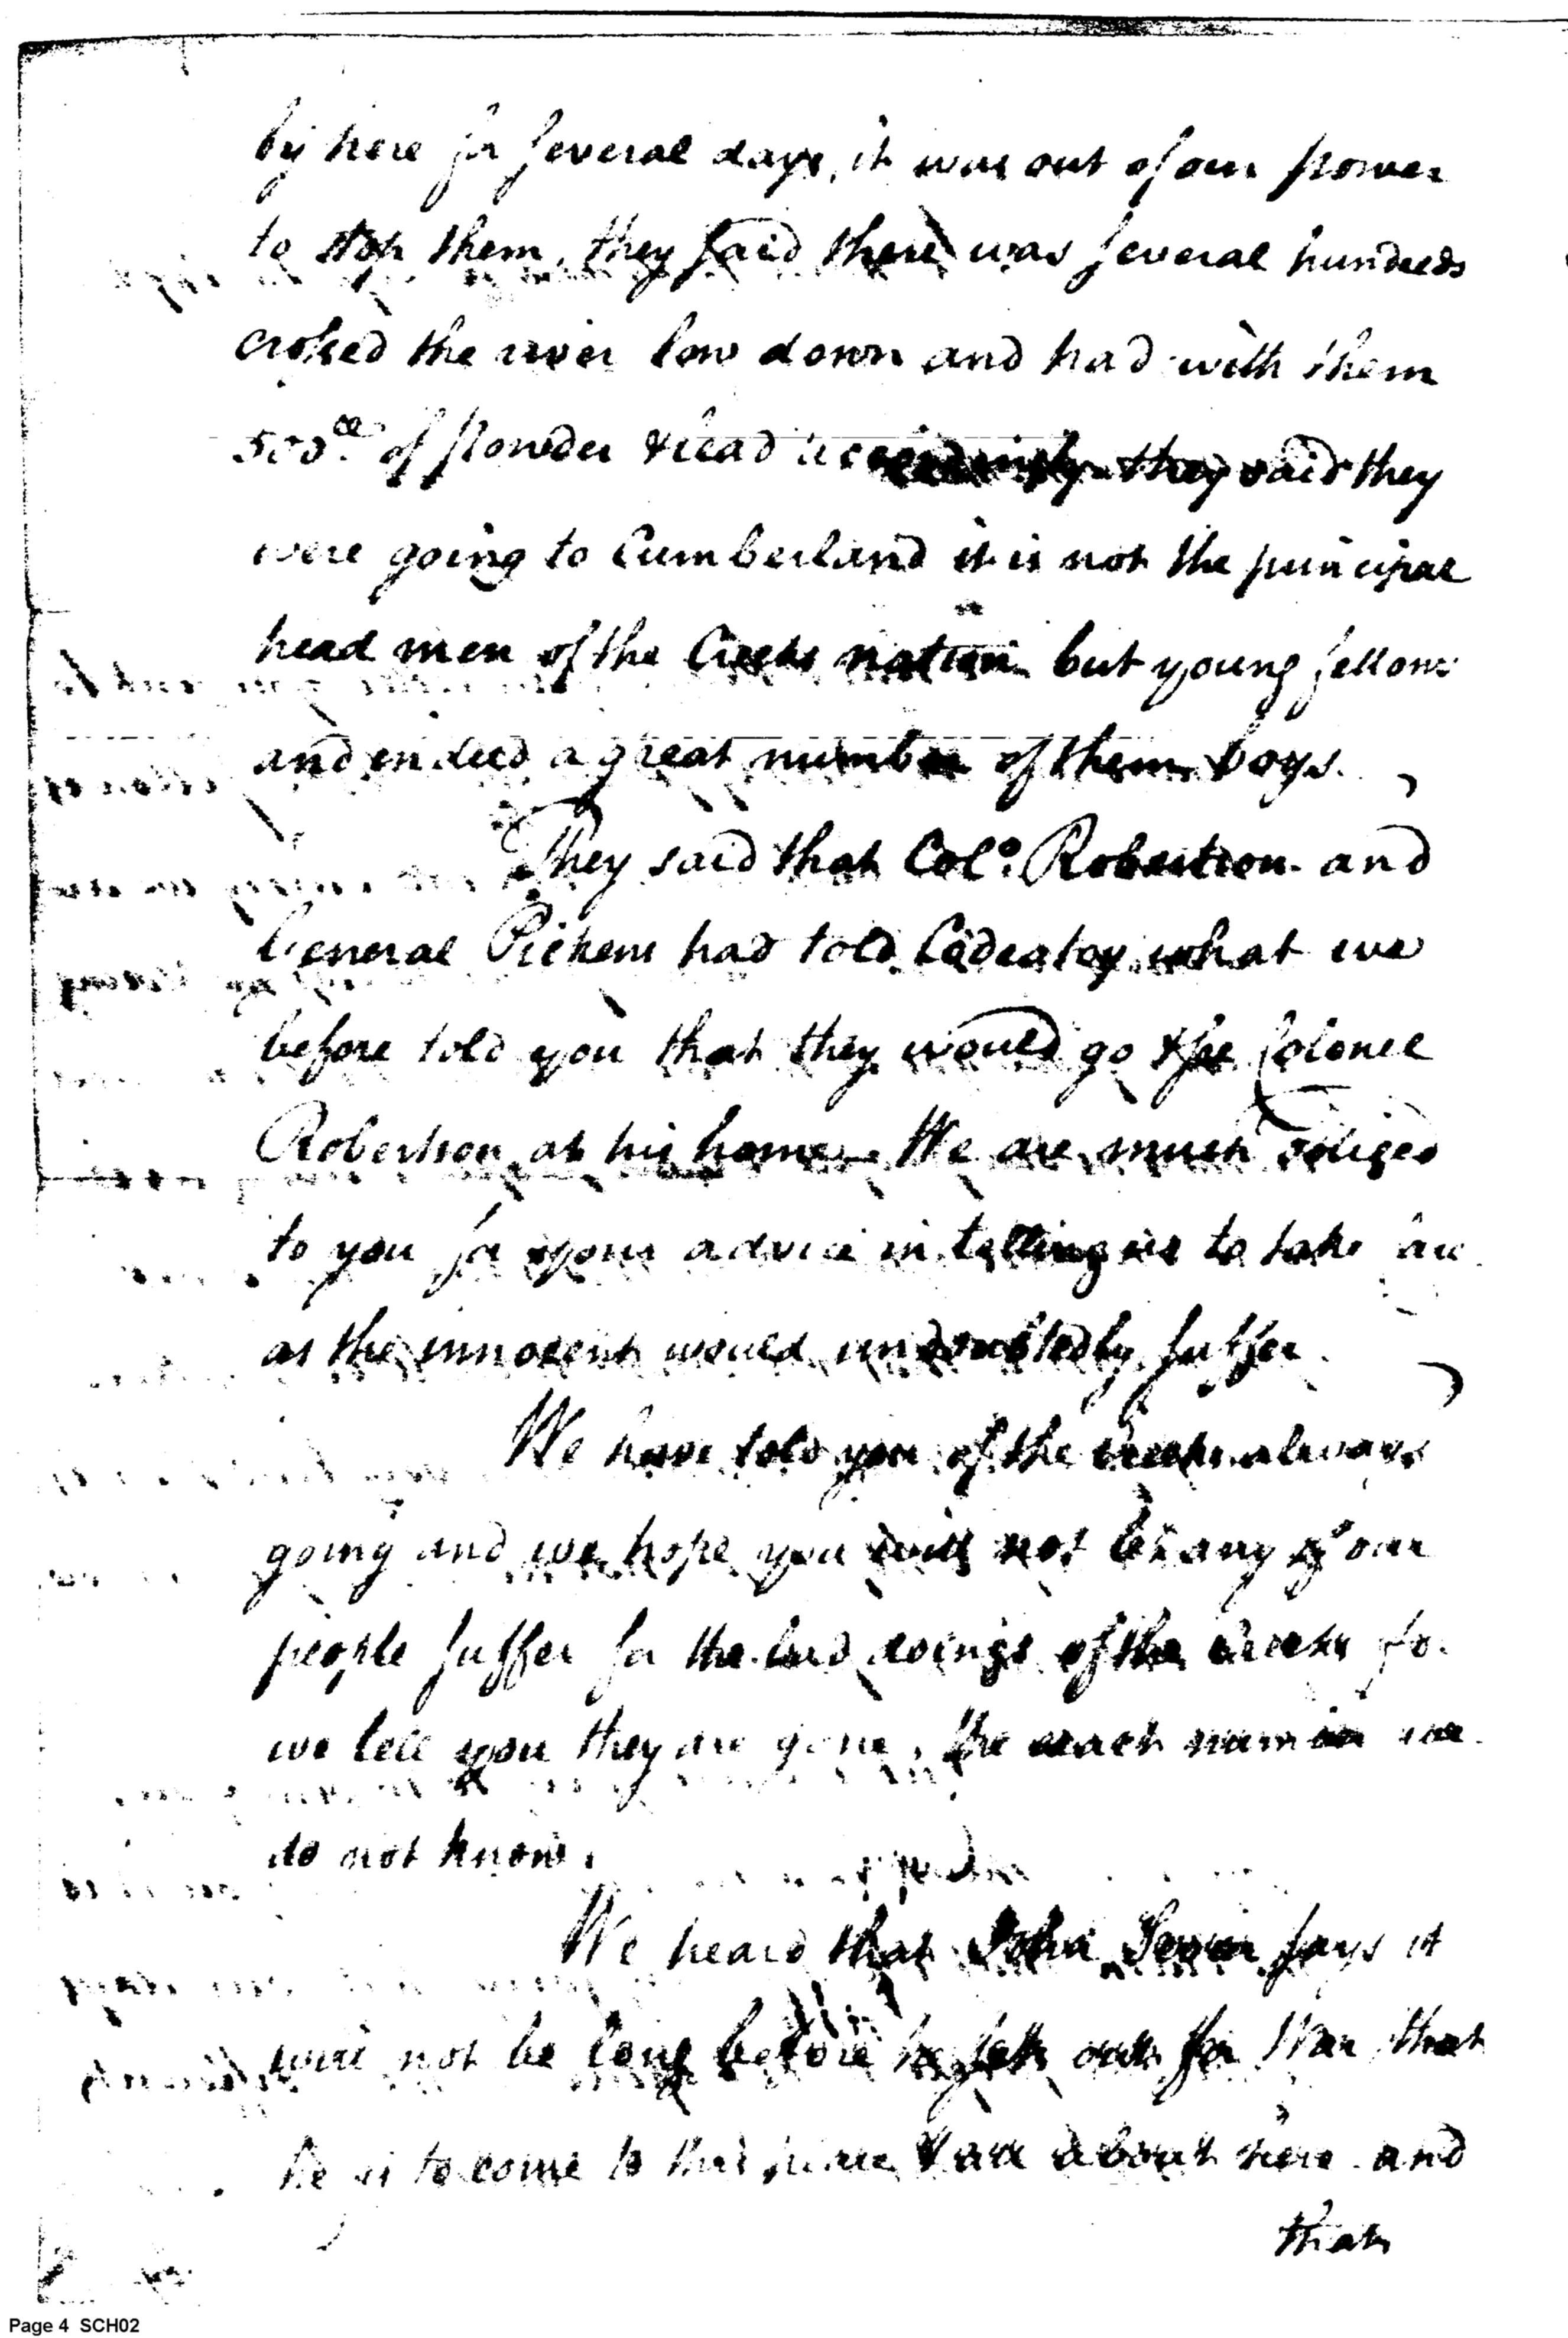 by here for several days, it was out of our power
to stop them, they said there was several hundreds
crossed the river low down and had with them
500 of powder & lead accordingly they said they
were going to Cumberland it is not the principal
head men of the Creeks nation but young fellows
and indeed a great number of them boys.
They said that Colo. Robertson and
General Pickens had told what we
before told you that they would go & see Colonel
Robertson at his home. We are much obliged
to you for your advice in telling us to take
as the innocent would undoubtedly suffer.
We have told you of the Creeks always
going and we hope you will not let any of our
people suffer for the bad doings of the Creeks for
we tell you they are gone, the exact number we
do not know.
We heard that John Sevier says it
will not be long before he sets out for War that
he is to come to this place & all about here and
that
Page 4 SCH02